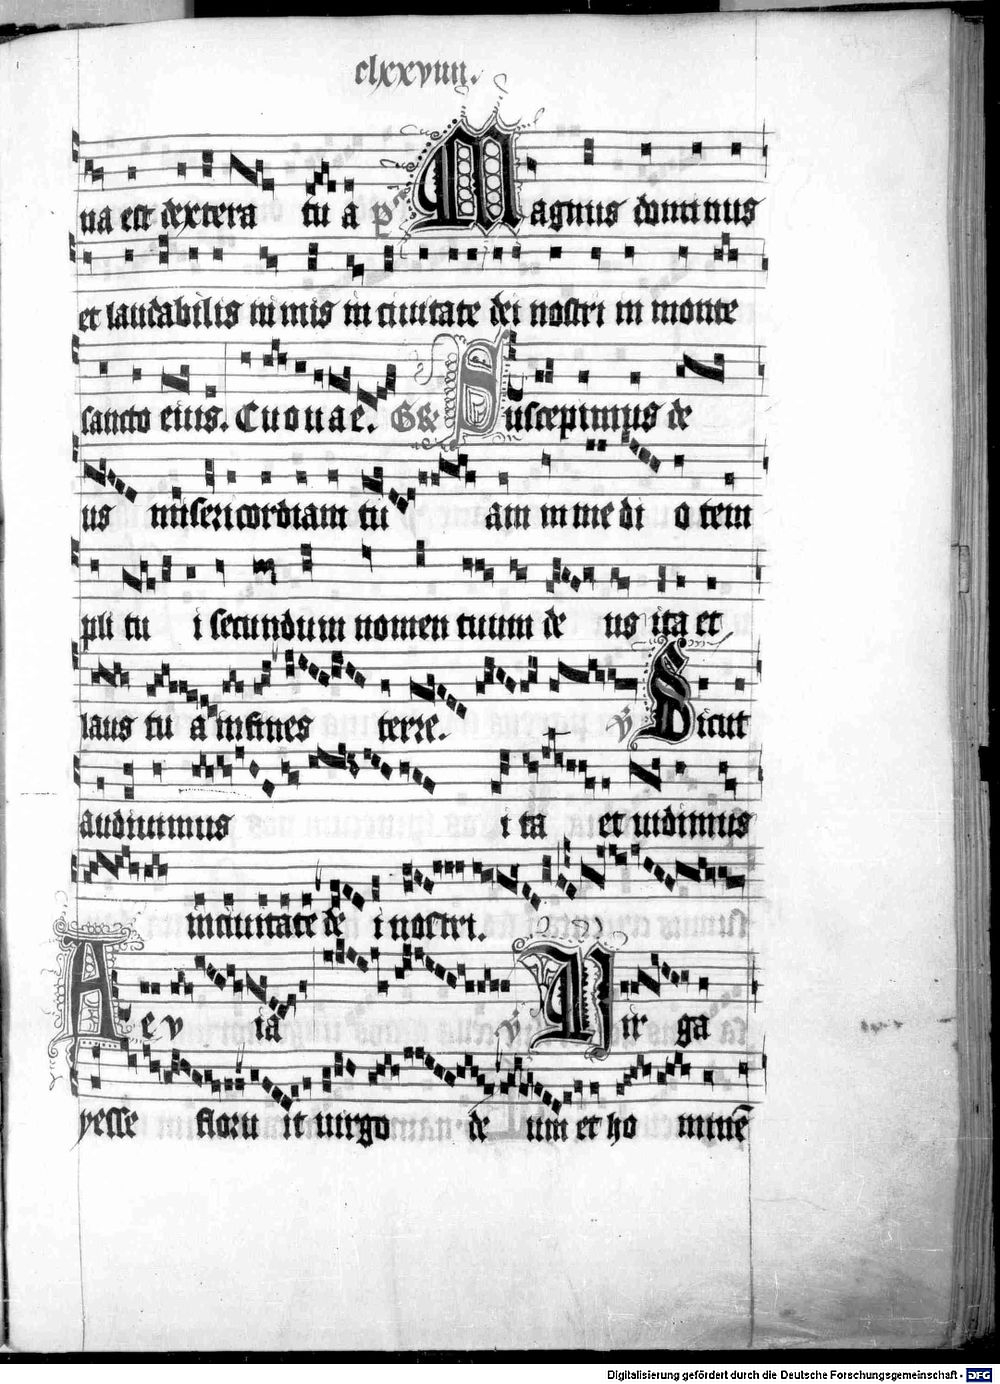 clxxviiii.
na est dextera tu a ps Magnus dominus
et laudabilis nimis in ciuitate dei nostri in monte
sancto eius. Euouae. Gr Suscepimus de
us misericordiam tu am in me di o tem
pli tu i secundum nomen tuum de us ita et
laus tu a in fines terre. V Sicut
audiuimus i ta et uidimus
in ciuitate de i nostri.
Ae v ia V Uir ga
yesse floru it uirgo de um et ho minē
Digitalisierung gefördert durch die Deutsche Forschungsgemeinschaft - DFG